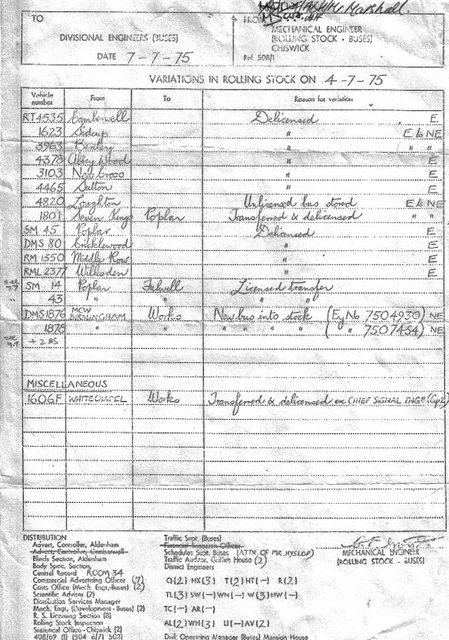 TO
DIVISIONAL ENGINEERS (BUSES)
DATE 7-7-75
FROM
MECHANICAL ENGINEER
(ROLLING STOCK - BUSES)
CHISWICK
Ref. 508/1
Marshall.
VARIATIONS IN ROLLING STOCK ON 4-7-75
Vehicle number From To Reason for variation
RT4535 Camberwell Delicensed E
1623 Sidcup " E to NE
3963 Bexley " E
4378 Abbey Wood " E
3103 New Cross " E
4465 Sutton " E
4820 Loughton Unlicensed bus stored E to NE
1801 Seven Kings Poplar Transferred & delicensed " "
SM 45 Poplar Delicensed E
DMS 80 Cricklewood " E
RM 1550 Middle Row " E
RML 2377 Willesden " E
SM 14 Poplar Fulwell Licensed transfer
43 " " "
DMS1876 MCW BIRMINGHAM Works New bus into stock (Eng No 7504930) NE
1878 " " " " " " ( " 7507454) NE
MISCELLANEOUS
1606F WHITECHAPEL Works Transferred & delicensed ex CHIEF SIGNAL ENGR
DISTRIBUTION
Advert. Controller, Aldenham
Advert. Controller, Camberwell
Blinds Section, Aldenham
Body Spec. Section,
Central Record ROOM 34
Commercial Advertising Officer (7)
Costs Office (Mech. Engr. Buses) (2)
Scientific Adviser (2)
Distribution Services Manager
Mech. Engr. (Development - Buses) (2)
R. S. Licensing Section (8)
Rolling Stock Inspection
Statistical Office - Chiswick (2)
Traffic Supt. (Buses)
Schedules Supt. Buses (ATTN OF MR. HYSLOP)
Traffic Auditor, Griffith House (2)
District Engineers
Q(2) HX(3) T(2) HT(-) R(2)
TL(3) SW(-) WN(-) W(3) HW(-)
TC(-) AR(-)
AL(2) WH(3) U(-) AV(2)
Divl. Operating Manager (Buses) Mansion House
MECHANICAL ENGINEER
(ROLLING STOCK - BUSES)